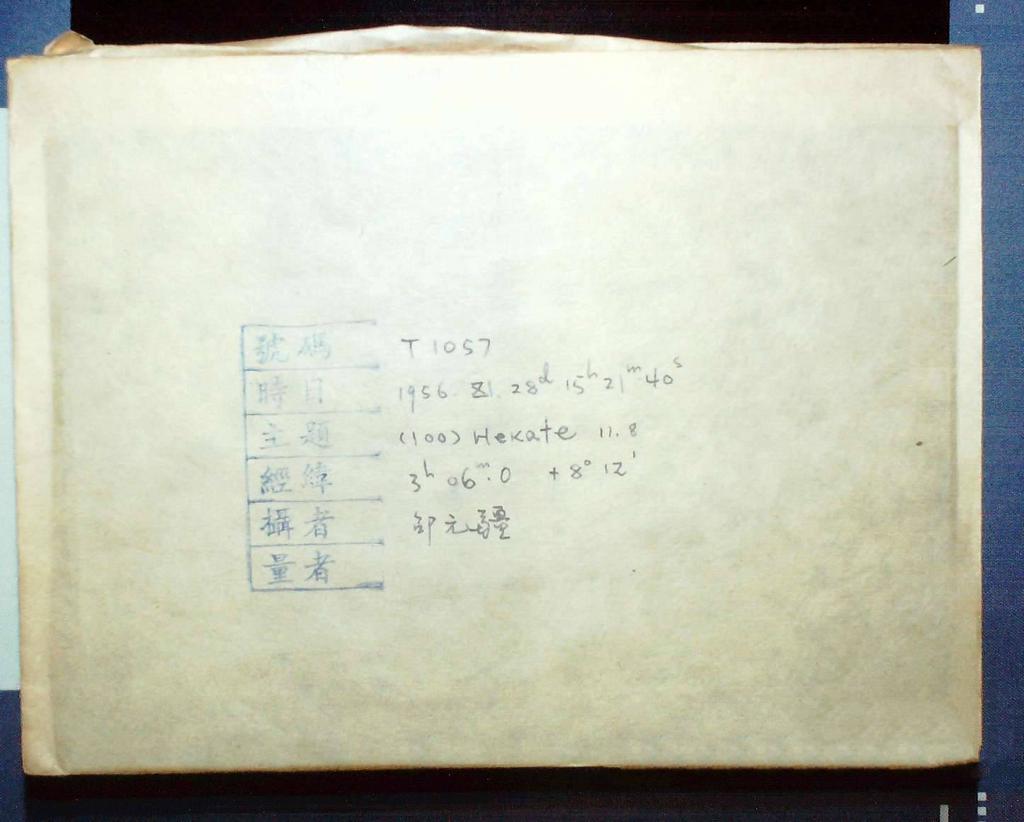 號碼 T 1057
時日 1956. XI. 28ᵈ 15ʰ 21ᵐ 40ˢ
主題 (100) Hekate 11.8
經緯 3ʰ 06ᵐ.0 +8° 12'
攝者 元疆
量者